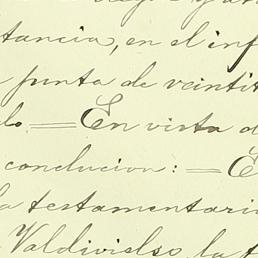 tancia, en el inf
punta de veintit
do. — En vista d
conclucion: — E
la testamentari
Valdivielso, la t